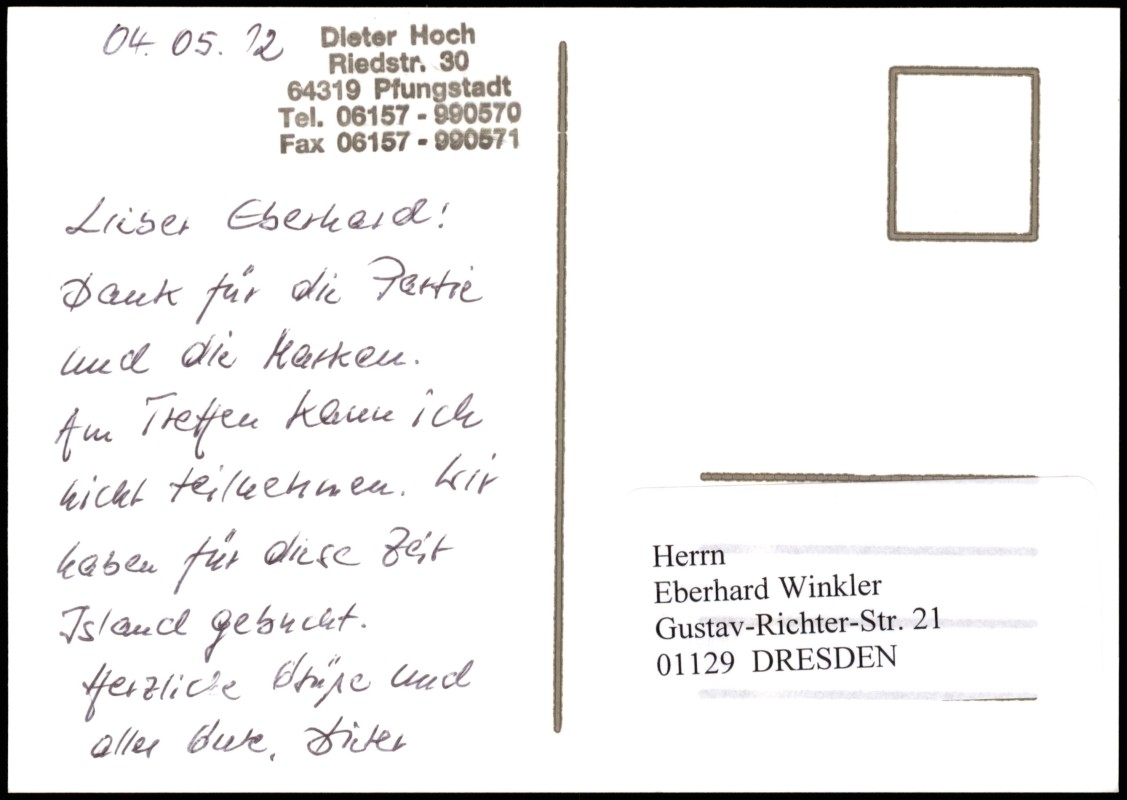 04. 05. 12
Dieter Hoch
Riedstr. 30
64319 Pfungstadt
Tel. 06157 - 990570
Fax 06157 - 990571
Lieber Eberhard!
Dank für die Partie
und die Marken.
Am Treffen kann ich
nicht teilnehmen. Wir
haben für diese Zeit
Island gebucht.
Herzliche Grüße und
alles Gute, Dieter
Herrn
Eberhard Winkler
Gustav-Richter-Str. 21
01129 DRESDEN